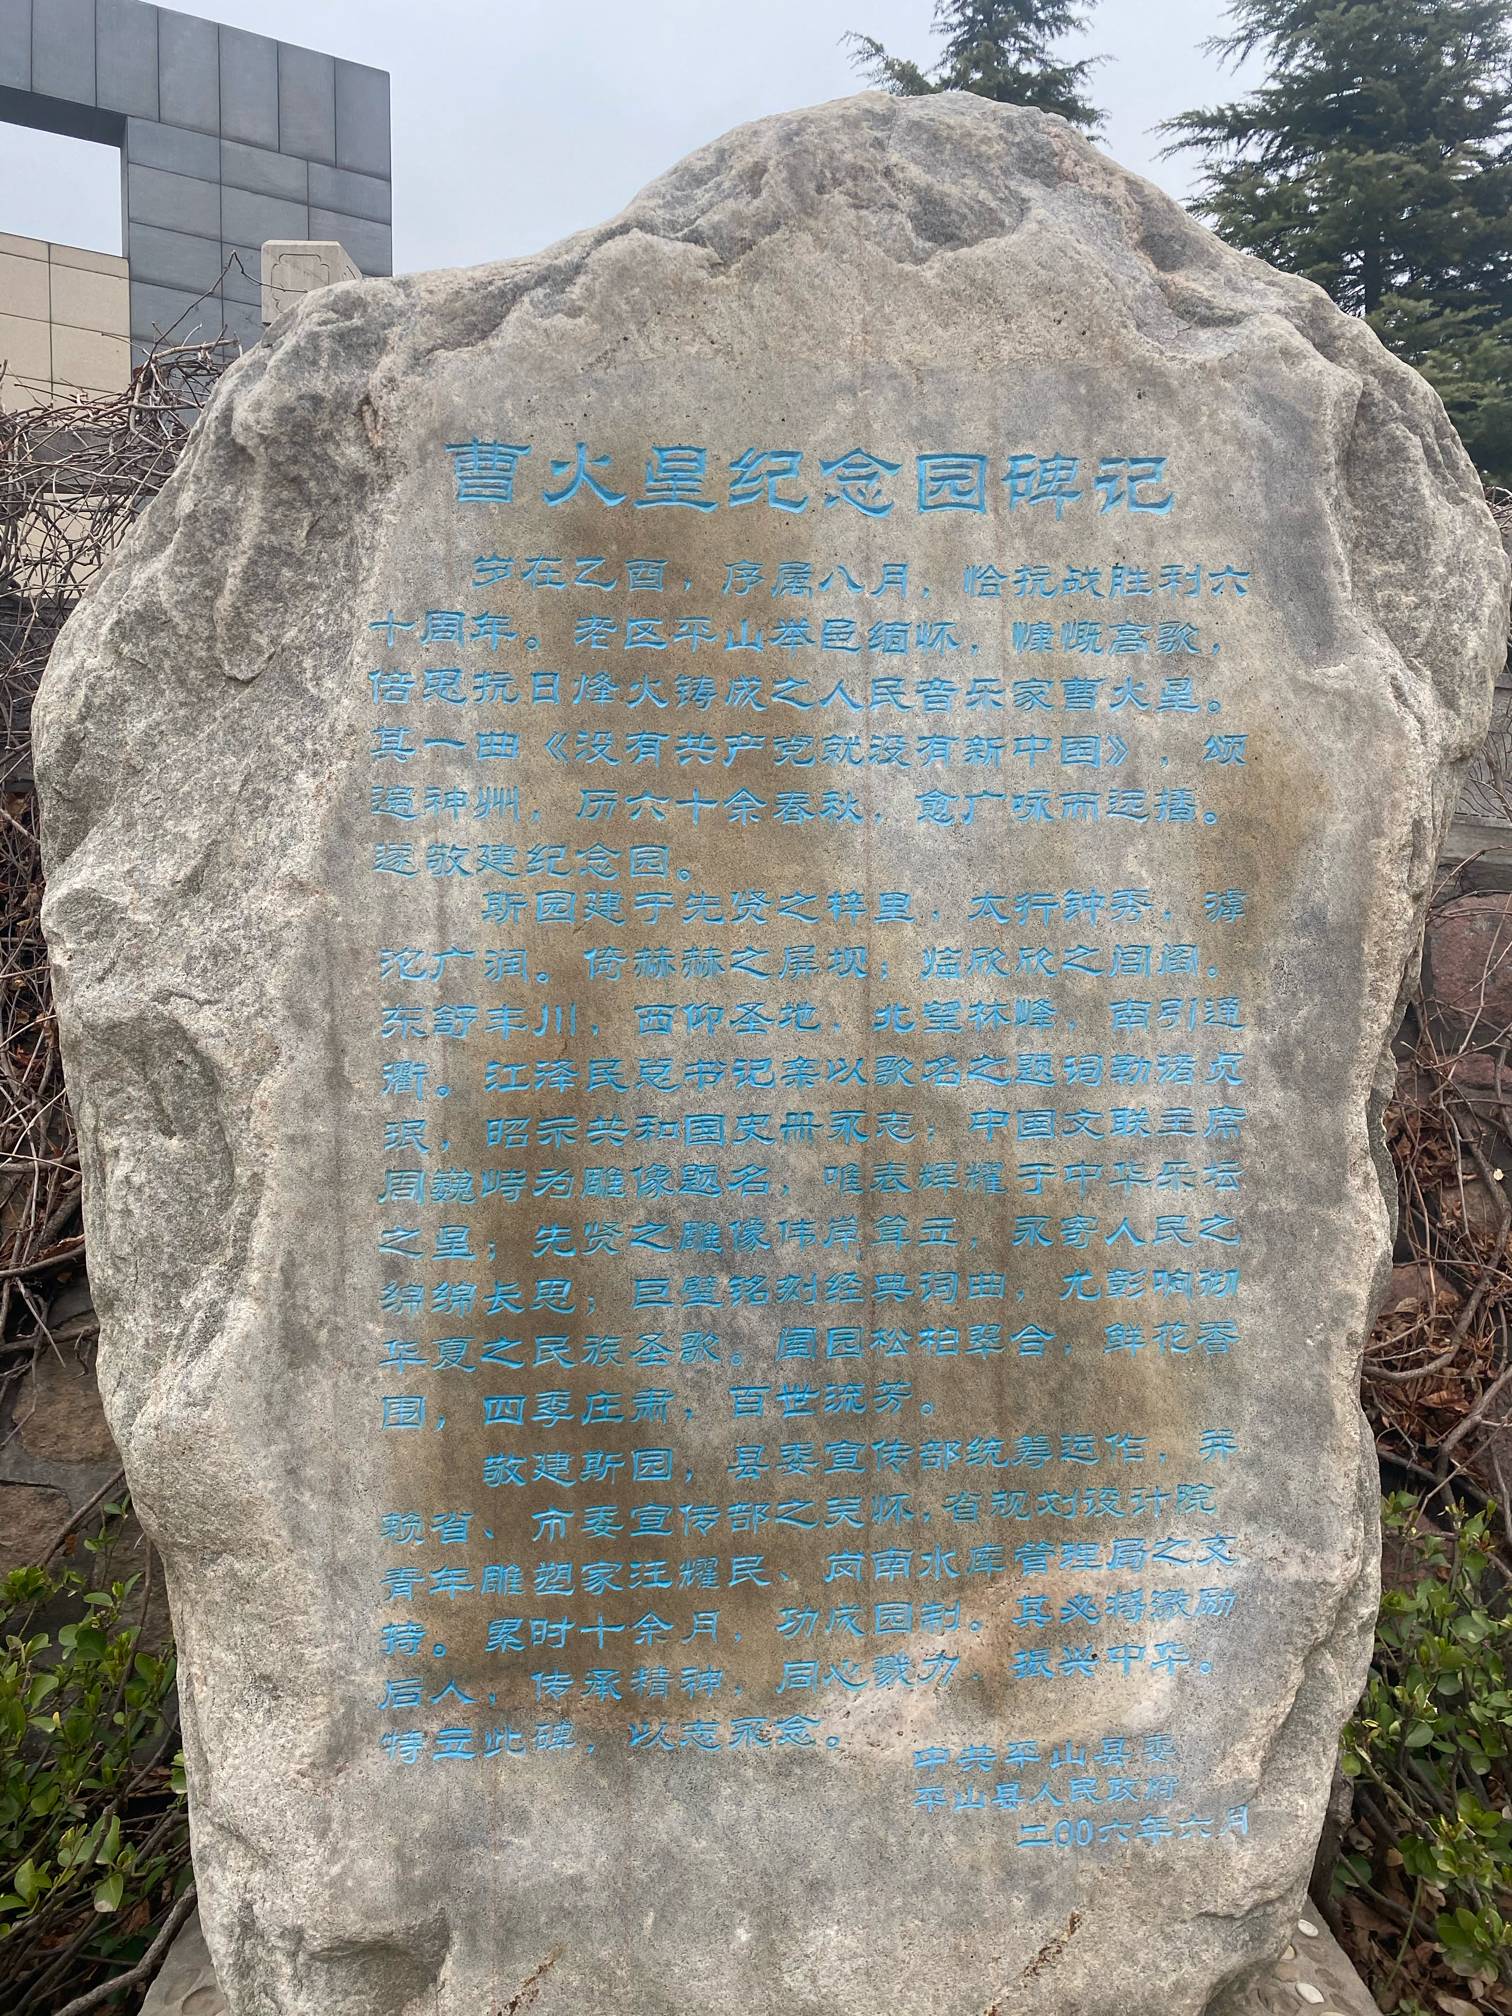 曹火星纪念园碑记
岁在乙酉，序属八月，恰抗战胜利六
十周年。老区平山举邑缅怀，慷慨高歌，
倍思抗日烽火铸成之人民音乐家曹火星。
其一曲《没有共产党就没有新中国》，颂
遍神州，历六十余春秋，愈广咏而远播。
遂敬建纪念园。
斯园建于先贤之梓里，太行钟秀，滹
沱广润。倚赫赫之屏坝；临欣欣之闾阎。
东舒丰川，西仰圣地，北望林峰，南引通
衢。江泽民总书记亲以歌名之题词勒诸贞
珉，昭示共和国史册永志；中国文联主席
周巍峙为雕像题名，唯表辉耀于中华乐坛
之星；先贤之雕像伟岸耸立，永寄人民之
绵绵长思；巨璧铭刻经典词曲，尤彭响彻
华夏之民族圣歌。阖园松柏翠合，鲜花香
围，四季庄肃，百世流芳。
敬建斯园，县委宣传部统筹运作，并
赖省、市委宣传部之关怀，省规划设计院
青年雕塑家汪耀民、岗南水库管理局之支
持。累时十余月，功成园制。其必将激励
后人，传承精神，同心戮力，振兴中华。
特立此碑，以志永念。
中共平山县委
平山县人民政府
二00六年六月